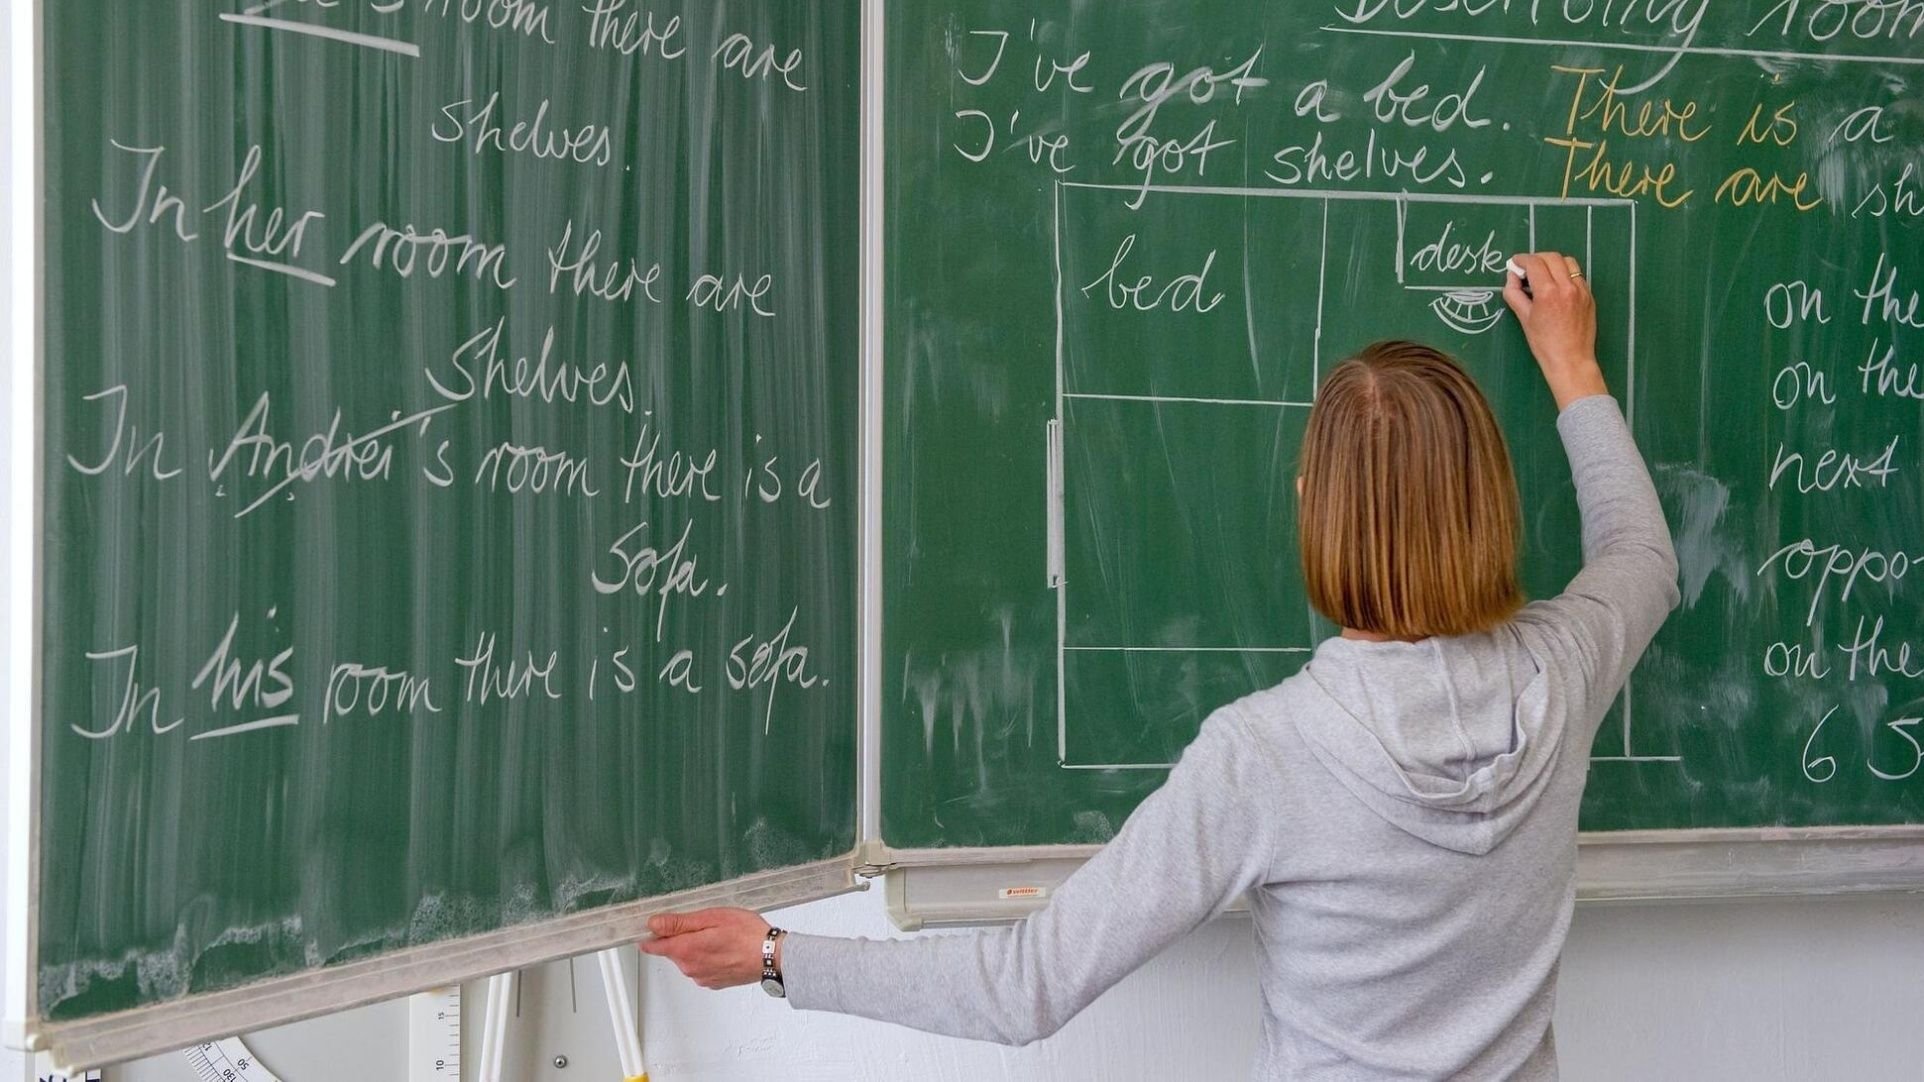 room there are
shelves.
In her room there are
shelves.
In Andrei's room there is a
sofa.
In his room there is a sofa.
Describing room
I've got a bed. There is a
I've got shelves. There are sh
bed
desk
on the
on the
next
oppo
on the
6 5
wittler
15
10
50
130